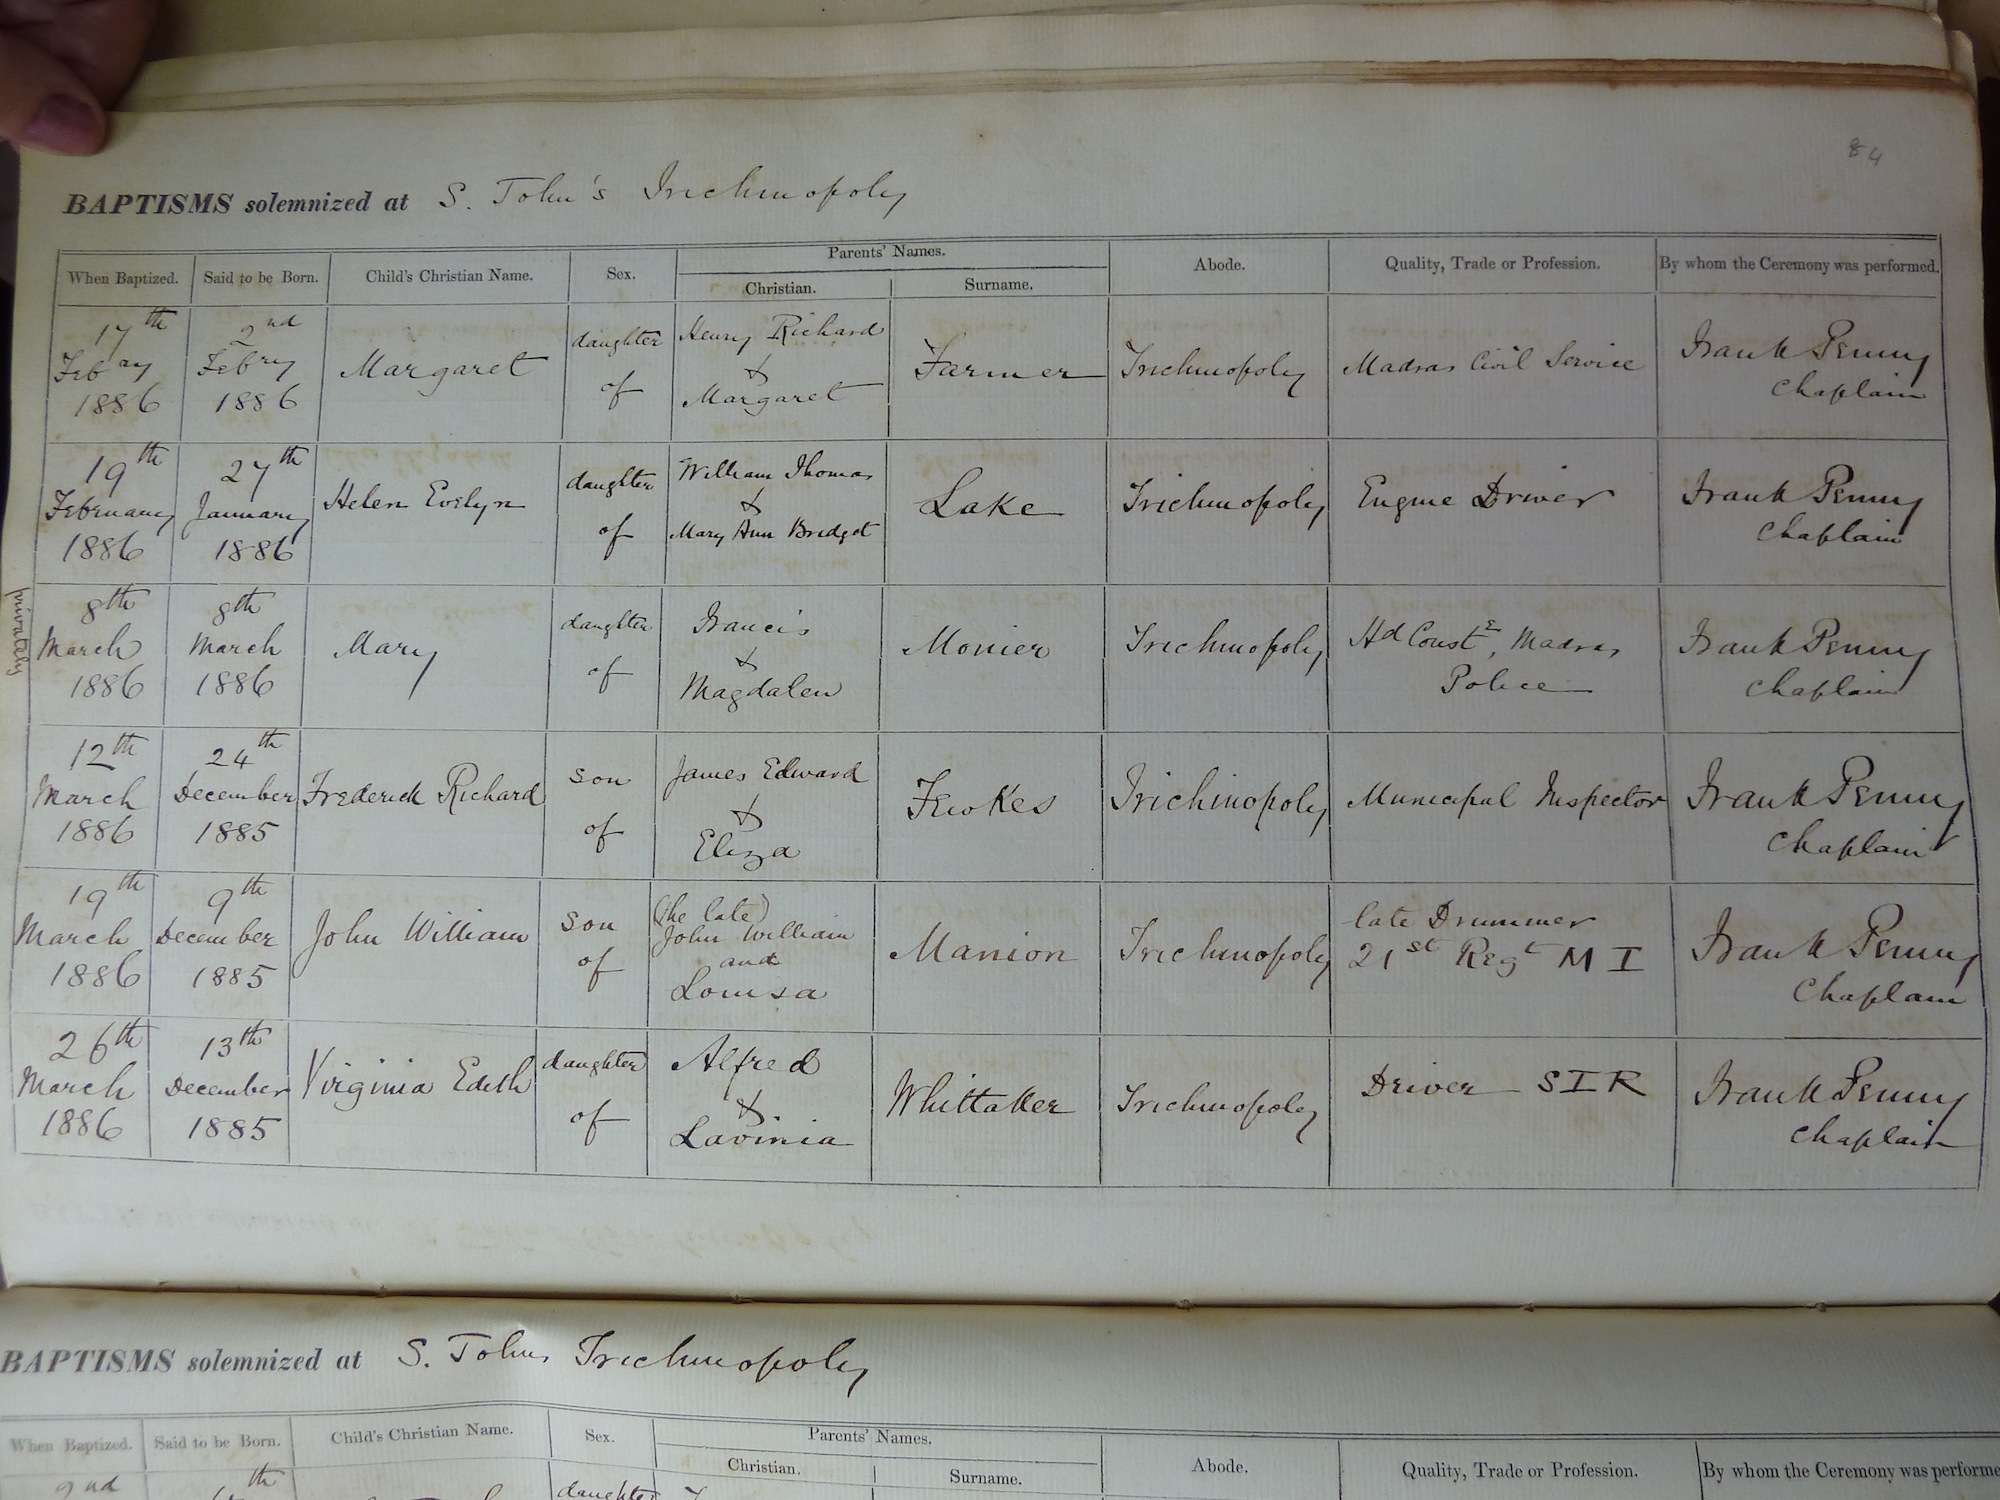 84
BAPTISMS solemnized at S. John's Trichinopoly
When Baptized. Said to be Born. Child's Christian Name. Sex. Parents' Names. Christian. Surname. Abode. Quality, Trade or Profession. By whom the Ceremony was performed.
17th Febay 1886 2nd Febry 1886 Margaret daughter of Henry Richard & Margaret Farmer Trichinopoly Madras Civil Service Frank Penny Chaplain
19th February 1886 27th January 1886 Helen Evelyn daughter of William Thomas & Mary Ann Bridget Lake Trichinopoly Engine Driver Frank Penny Chaplain
privately 8th March 1886 8th March 1886 Mary daughter of Francis & Magdalen Monier Trichinopoly Hd Conste, Madras Police Frank Penny Chaplain
12th March 1886 24th December 1885 Frederick Richard son of James Edward & Eliza Trichinopoly Municipal Inspector Frank Penny Chaplain
19th March 1886 9th December 1885 John William son of (the late) John William and Louisa Manion Trichinopoly late Drummer 21st Regt M I Frank Penny Chaplain
26th March 1886 13th December 1885 Virginia Edith daughter of Alfred & Lavinia Whittaker Trichinopoly Driver S I R Frank Penny Chaplain
BAPTISMS solemnized at S. Johns Trichinopoly
When Baptized. Said to be Born. Child's Christian Name. Sex. Parents' Names. Christian. Surname. Abode. Quality, Trade or Profession. By whom the Ceremony was performe
2nd th daughter